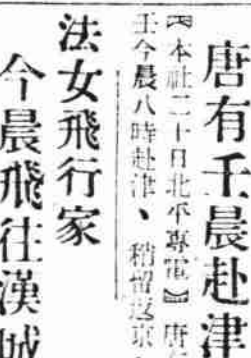 唐有壬晨赴津
【本社二十日北平專電】唐
壬今晨八時赴津、稍留返京
法女飛行家
今晨飛往漢城